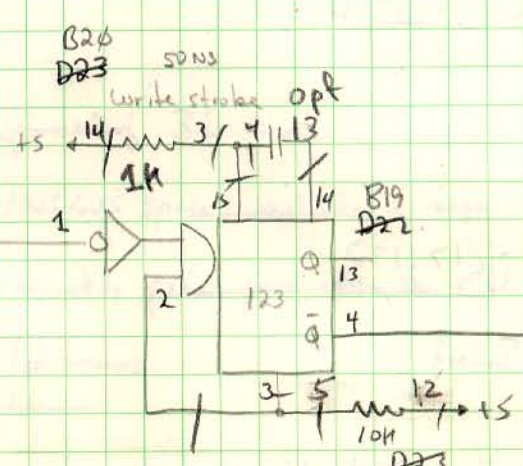 B20
D23
50NS
write strobe opt
+5 14 3 4 13
1K
15 14
B19
D22
1
Q 13
2
123
Q̄ 4
3 5 12 +5
10K
D23